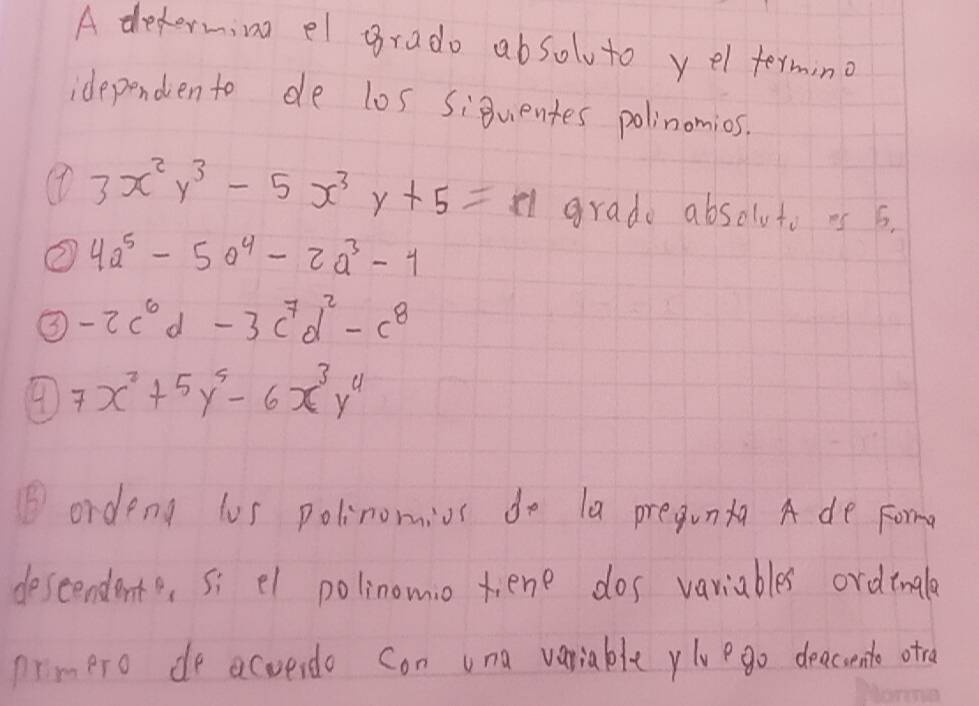 A determina el grado absoluto y el termino
idependiento de los siguientes polinomios.
① 3x²y³ - 5x³y + 5 = el grado absoluto es 5.
② 4a⁵ - 5a⁴ - 2a³ - 1
③ -2c⁶d - 3c⁷d² - c⁸
④ 7x² + 5y⁵ - 6x³y⁴
B ordena los polinomios de la pregunta A de Forma
descendente. si el polinomio tiene dos variables ordenala
primero de acuerdo con una variable y luego deacuento otra
Norma